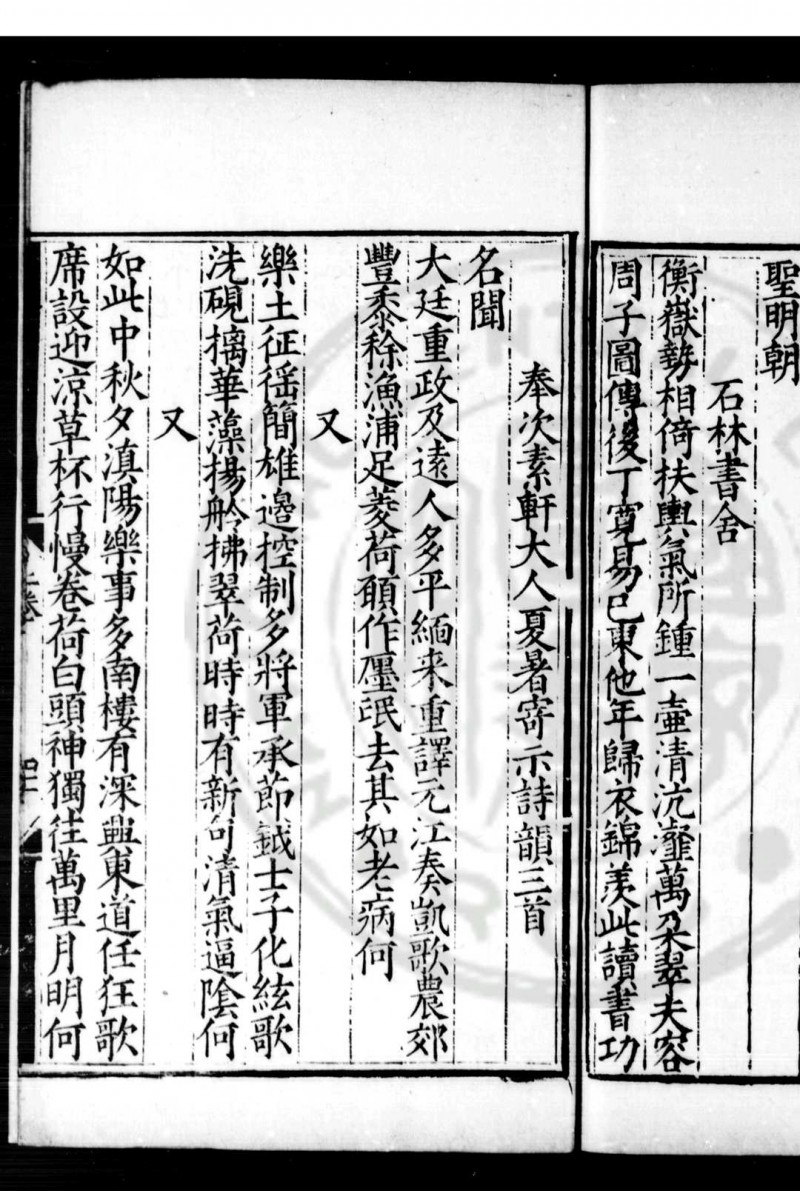 聖明朝
石林書舍
衡嶽勢相倚扶輿氣所鍾一壺清沆瀣萬朵翠夫容
周子圖傳後丁寬易已東他年歸衣錦羡此讀書功
奉次素軒大人夏暑寄示詩韻三首
名聞
大廷重政及遠人多平緬来重譯元江奏凱歌農郊
豐黍稌漁浦足菱荷願作㕓氓去其如老病何
又
樂土征徭簡雄邊控制多將軍承節鉞士子化絃歌
洗硯摛華藻揚舲拂翠荷時時有新句清氣逼陰何
又
如此中秋夕滇陽樂事多南樓有深興東道任狂歌
席設迎涼草杯行慢卷荷白頭神獨往萬里月明何
上卷